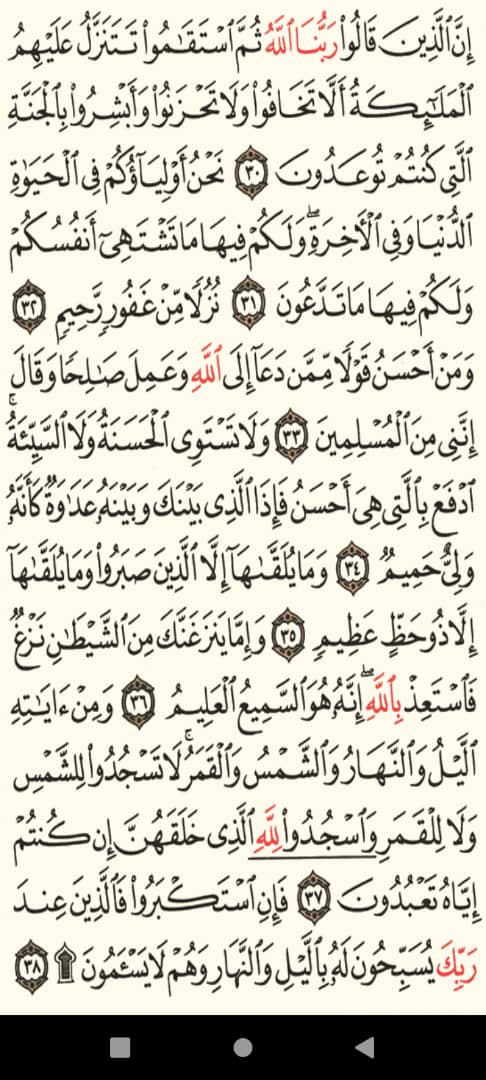 إِنَّ ٱلَّذِينَ قَالُوا۟ رَبُّنَا ٱللَّهُ ثُمَّ ٱسْتَقَـٰمُوا۟ تَتَنَزَّلُ عَلَيْهِمُ
ٱلْمَلَـٰٓئِكَةُ أَلَّا تَخَافُوا۟ وَلَا تَحْزَنُوا۟ وَأَبْشِرُوا۟ بِٱلْجَنَّةِ
ٱلَّتِى كُنتُمْ تُوعَدُونَ ٣٠ نَحْنُ أَوْلِيَآؤُكُمْ فِى ٱلْحَيَوٰةِ
ٱلدُّنْيَا وَفِى ٱلْـَٔاخِرَةِ ۖ وَلَكُمْ فِيهَا مَا تَشْتَهِىٓ أَنفُسُكُمْ
وَلَكُمْ فِيهَا مَا تَدَّعُونَ ٣١ نُزُلًا مِّنْ غَفُورٍ رَّحِيمٍ ٣٢
وَمَنْ أَحْسَنُ قَوْلًا مِّمَّن دَعَآ إِلَى ٱللَّهِ وَعَمِلَ صَـٰلِحًا وَقَالَ
إِنَّنِى مِنَ ٱلْمُسْلِمِينَ ٣٣ وَلَا تَسْتَوِى ٱلْحَسَنَةُ وَلَا ٱلسَّيِّئَةُ ۚ
ٱدْفَعْ بِٱلَّتِى هِىَ أَحْسَنُ فَإِذَا ٱلَّذِى بَيْنَكَ وَبَيْنَهُۥ عَدَٰوَةٌ كَأَنَّهُۥ
وَلِىٌّ حَمِيمٌ ٣٤ وَمَا يُلَقَّىٰهَآ إِلَّا ٱلَّذِينَ صَبَرُوا۟ وَمَا يُلَقَّىٰهَآ
إِلَّا ذُو حَظٍّ عَظِيمٍ ٣٥ وَإِمَّا يَنزَغَنَّكَ مِنَ ٱلشَّيْطَـٰنِ نَزْغٌ
فَٱسْتَعِذْ بِٱللَّهِ ۖ إِنَّهُۥ هُوَ ٱلسَّمِيعُ ٱلْعَلِيمُ ٣٦ وَمِنْ ءَايَـٰتِهِ
ٱلَّيْلُ وَٱلنَّهَارُ وَٱلشَّمْسُ وَٱلْقَمَرُ ۚ لَا تَسْجُدُوا۟ لِلشَّمْسِ
وَلَا لِلْقَمَرِ وَٱسْجُدُوا۟ لِلَّهِ ٱلَّذِى خَلَقَهُنَّ إِن كُنتُمْ
إِيَّاهُ تَعْبُدُونَ ٣٧ فَإِنِ ٱسْتَكْبَرُوا۟ فَٱلَّذِينَ عِندَ
رَبِّكَ يُسَبِّحُونَ لَهُۥ بِٱلَّيْلِ وَٱلنَّهَارِ وَهُمْ لَا يَسْـَٔمُونَ ۩ ٣٨